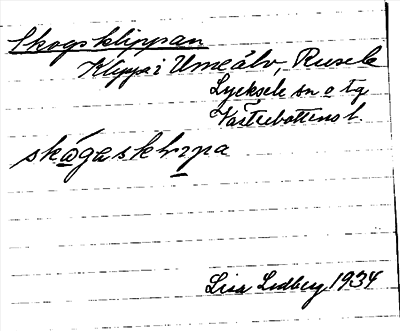 Skogsklippan
Klippa i Umeälv, Rusele
Lycksele sn o tg
Västerbottens l.
skågaskləpa
Lisa Lidberg 1934